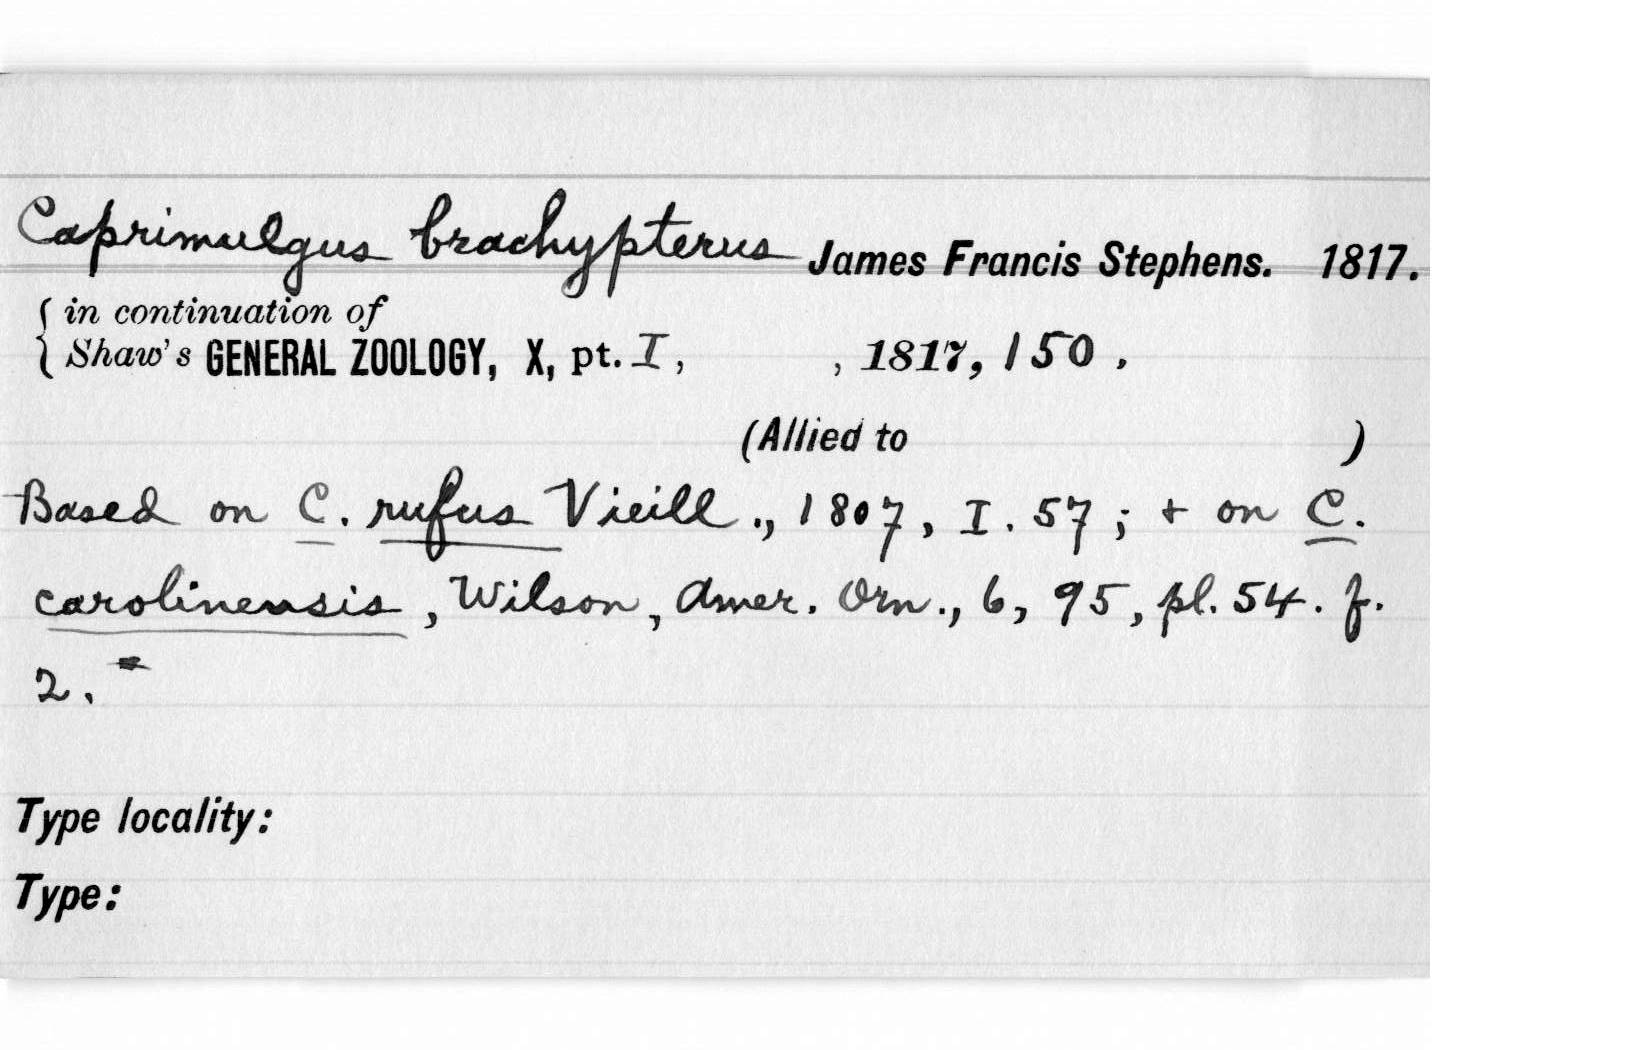 Caprimulgus brachypterus James Francis Stephens. 1817.
in continuation of
Shaw's GENERAL ZOOLOGY, X, pt. I, , 1817, 150.
(Allied to )
Based on C. rufus Vieill., 1807, I. 57; + on C.
carolinensis, Wilson, Amer. Orn., 6, 95, pl. 54. f.
2.
Type locality:
Type: